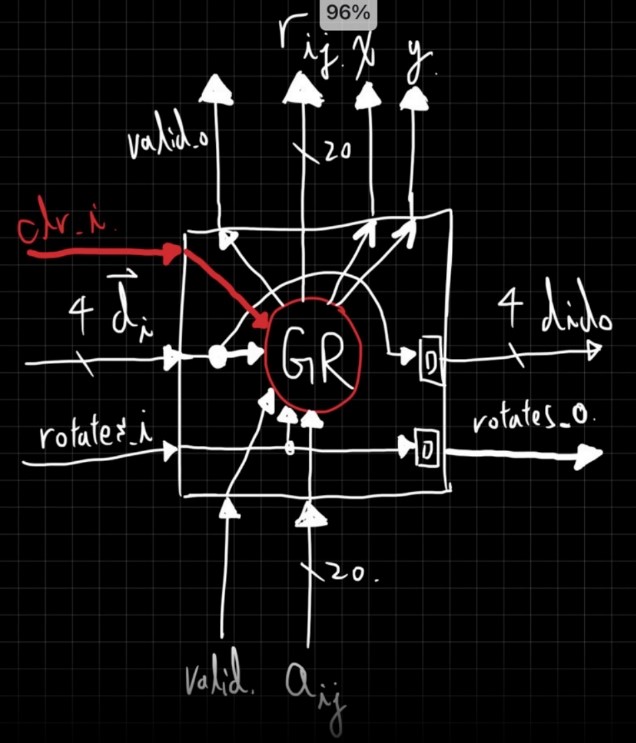 96%
r_ij. x y.
valid_o
20
clr_i.
4 d⃗_i
GR
4 dido
D
rotates_i
rotates_o.
D
20.
valid. a_ij